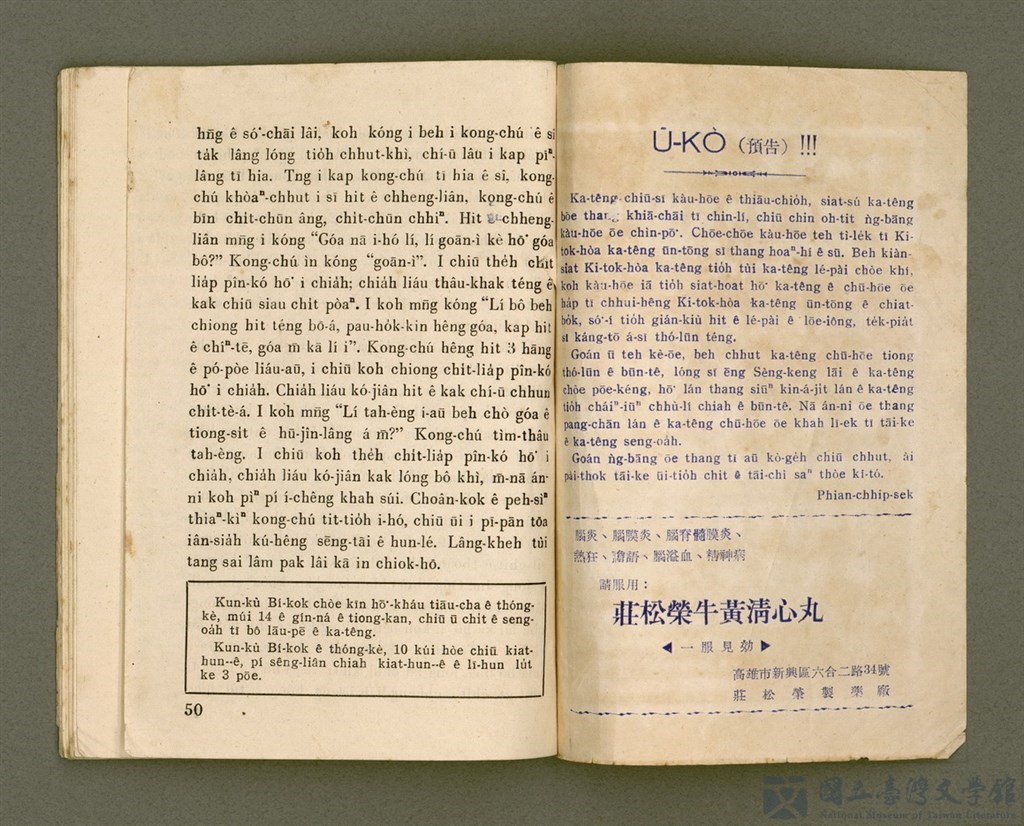 hn̄g ê só͘-chāi lâi, koh kóng i beh i kong-chú ê sî
ta̍k lâng lóng tio̍h chhut-khì, chí-ū lâu i kap pīⁿ-
lâng tī hia. Tng i kap kong-chú tī hia ê sî, kong-
chú khòaⁿ-chhut i sī hit ê chheng-liân, kong-chú ê
bīn chi̍t-chūn âng, chi̍t-chūn chhiⁿ. Hit ê chheng-
liân mn̄g i kóng “Góa nā i-hó lí, lí goān-ì kè hō͘ góa
bô?” Kong-chú ìn kóng “goān-ì”. I chiū the̍h chi̍t
lia̍p pîn-kó hō͘ i chia̍h; chia̍h liáu thâu-khak téng ê
kak chiū siau chi̍t pòaⁿ. I koh mn̄g kóng “Lí bô beh
chiong hit téng bō-á, pau-ho̍k-kin hêng góa, kap hit
ê chíⁿ-tē, góa m̄ kā lí i”. Kong-chú hêng hit 3 hāng
ê pó-pòe liáu-āu, i chiū koh chiong chi̍t-lia̍p pîn-kó
hō͘ i chia̍h. Chia̍h liáu kó-jiân hit ê kak chí-ū chhun
chi̍t-tè-á. I koh mn̄g “Lí tah-èng í-āu beh chò góa ê
tiong-si̍t ê hū-jîn-lâng á m̄?” Kong-chú tìm-thâu
tah-èng. I chiū koh the̍h chi̍t-lia̍p pîn-kó hō͘ i
chia̍h, chia̍h liáu kó-jiân kak lóng bô khì, m̄-nā án-
ni koh pìⁿ pí í-chêng khah súi. Choân-kok ê peh-sìⁿ
thiaⁿ-kìⁿ kong-chú tit-tio̍h i-hó, chiū ūi i pī-pān tōa
iân-sia̍h kú-hêng sēng-tāi ê hun-lé. Lâng-kheh tùi
tang sai lâm pak lâi kā in chiok-hō.
Kun-kù Bí-kok chòe kīn hō͘-kháu tiāu-cha ê thóng-
kè, múi 14 ê gín-ná ê tiong-kan, chiū ū chi̍t ê seng-
oa̍h tī bô lāu-pē ê ka-têng.
Kun-kù Bí-kok ê thóng-kè, 10 kúi hòe chiū kiat-
hun--ê, pí sêng-liân chiah kiat-hun--ê ê lī-hun lu̍t
ke 3 pōe.
50
Ū-KÒ (預告) !!!
Ka-têng chiū-sī kàu-hōe ê thiāu-chio̍h, siat-sú ka-têng
bōe thang khiā-chāi tī chin-lí, chiū chin oh-tit ǹg-bāng
kàu-hōe ōe chìn-pō͘. Chōe-chōe kàu-hōe teh tì-le̍k tī Ki-
tok-hòa ka-têng ūn-tōng sī thang hoaⁿ-hí ê sū. Beh kiàn-
siat Ki-tok-hòa ka-têng tio̍h tùi ka-têng lé-pài chòe khí,
koh kàu-hōe iā tio̍h siat-hoat hō͘ ka-têng ê chū-hōe ōe
ha̍p tī chhui-hêng Ki-tok-hòa ka-têng ūn-tōng ê chiat-
bo̍k, só͘-í tio̍h gián-kiù hit ê lé-pài ê lōe-iông, te̍k-pia̍t
sī káng-tō á-sī thó-lūn têng.
Goán ū teh kè-ōe, beh chhut ka-têng chū-hōe tiong
thó-lūn ê būn-tê, lóng sī ēng Sèng-keng lāi ê ka-têng
chòe pōe-kéng, hō͘ lán thang siūⁿ kin-á-ji̍t lán ê ka-têng
tio̍h cháiⁿ-iūⁿ chhù-lí chiah ê būn-tê. Nā án-ni ōe thang
pang-chān lán ê ka-têng chū-hōe ōe khah lī-ek tī tāi-ke
ê ka-têng seng-oa̍h.
Goán ǹg-bāng ōe thang tī aū kò-ge̍h chiū chhut, ài
pài-thok tāi-ke ūi-tio̍h chit ê tāi-chì saⁿ thòe kî-tó.
Phian-chhip-sek
腦炎、腦膜炎、腦脊髓膜炎、
熱狂、譫語、腦溢血、精神病
請服用：
莊松榮牛黃清心丸
◀一服見効▶
高雄市新興區六合二路34號
莊松榮製藥廠
國立臺灣文學館
National Museum of Taiwan Literature